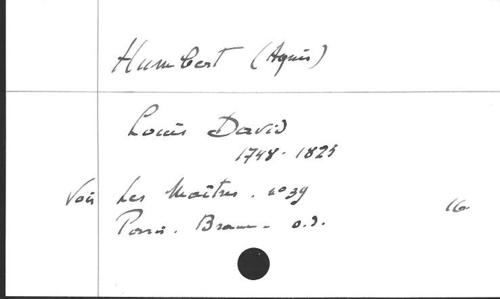 Humbert (Agnès)
Louis David
1748-1825
Voir Les Maîtres. n° 39
Paris. Braun. s.d.
16